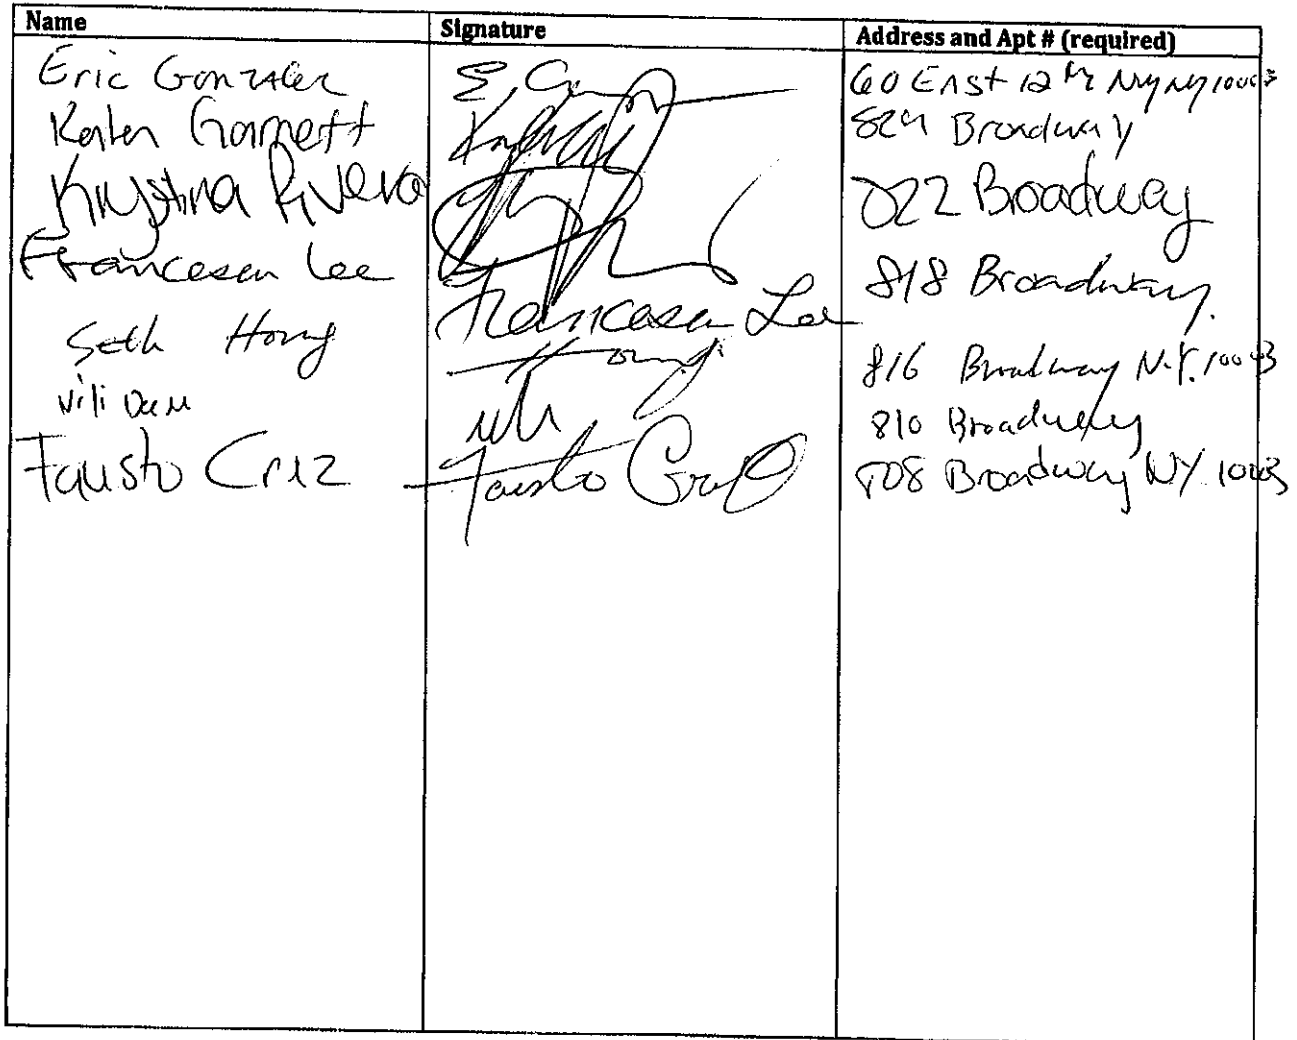 Name Signature Address and Apt # (required)
Eric Gonzalez E. G 60 East 12th NY NY 10003
Garnett 829 Broadway
Krystina Rivera 822 Broadway
Francesca Lee Francesca Lee 818 Broadway.
Seth Hong Hong 816 Broadway N.Y. 10003
810 Broadway
Fausto Cruz Fausto Cruz 808 Broadway NY 1003